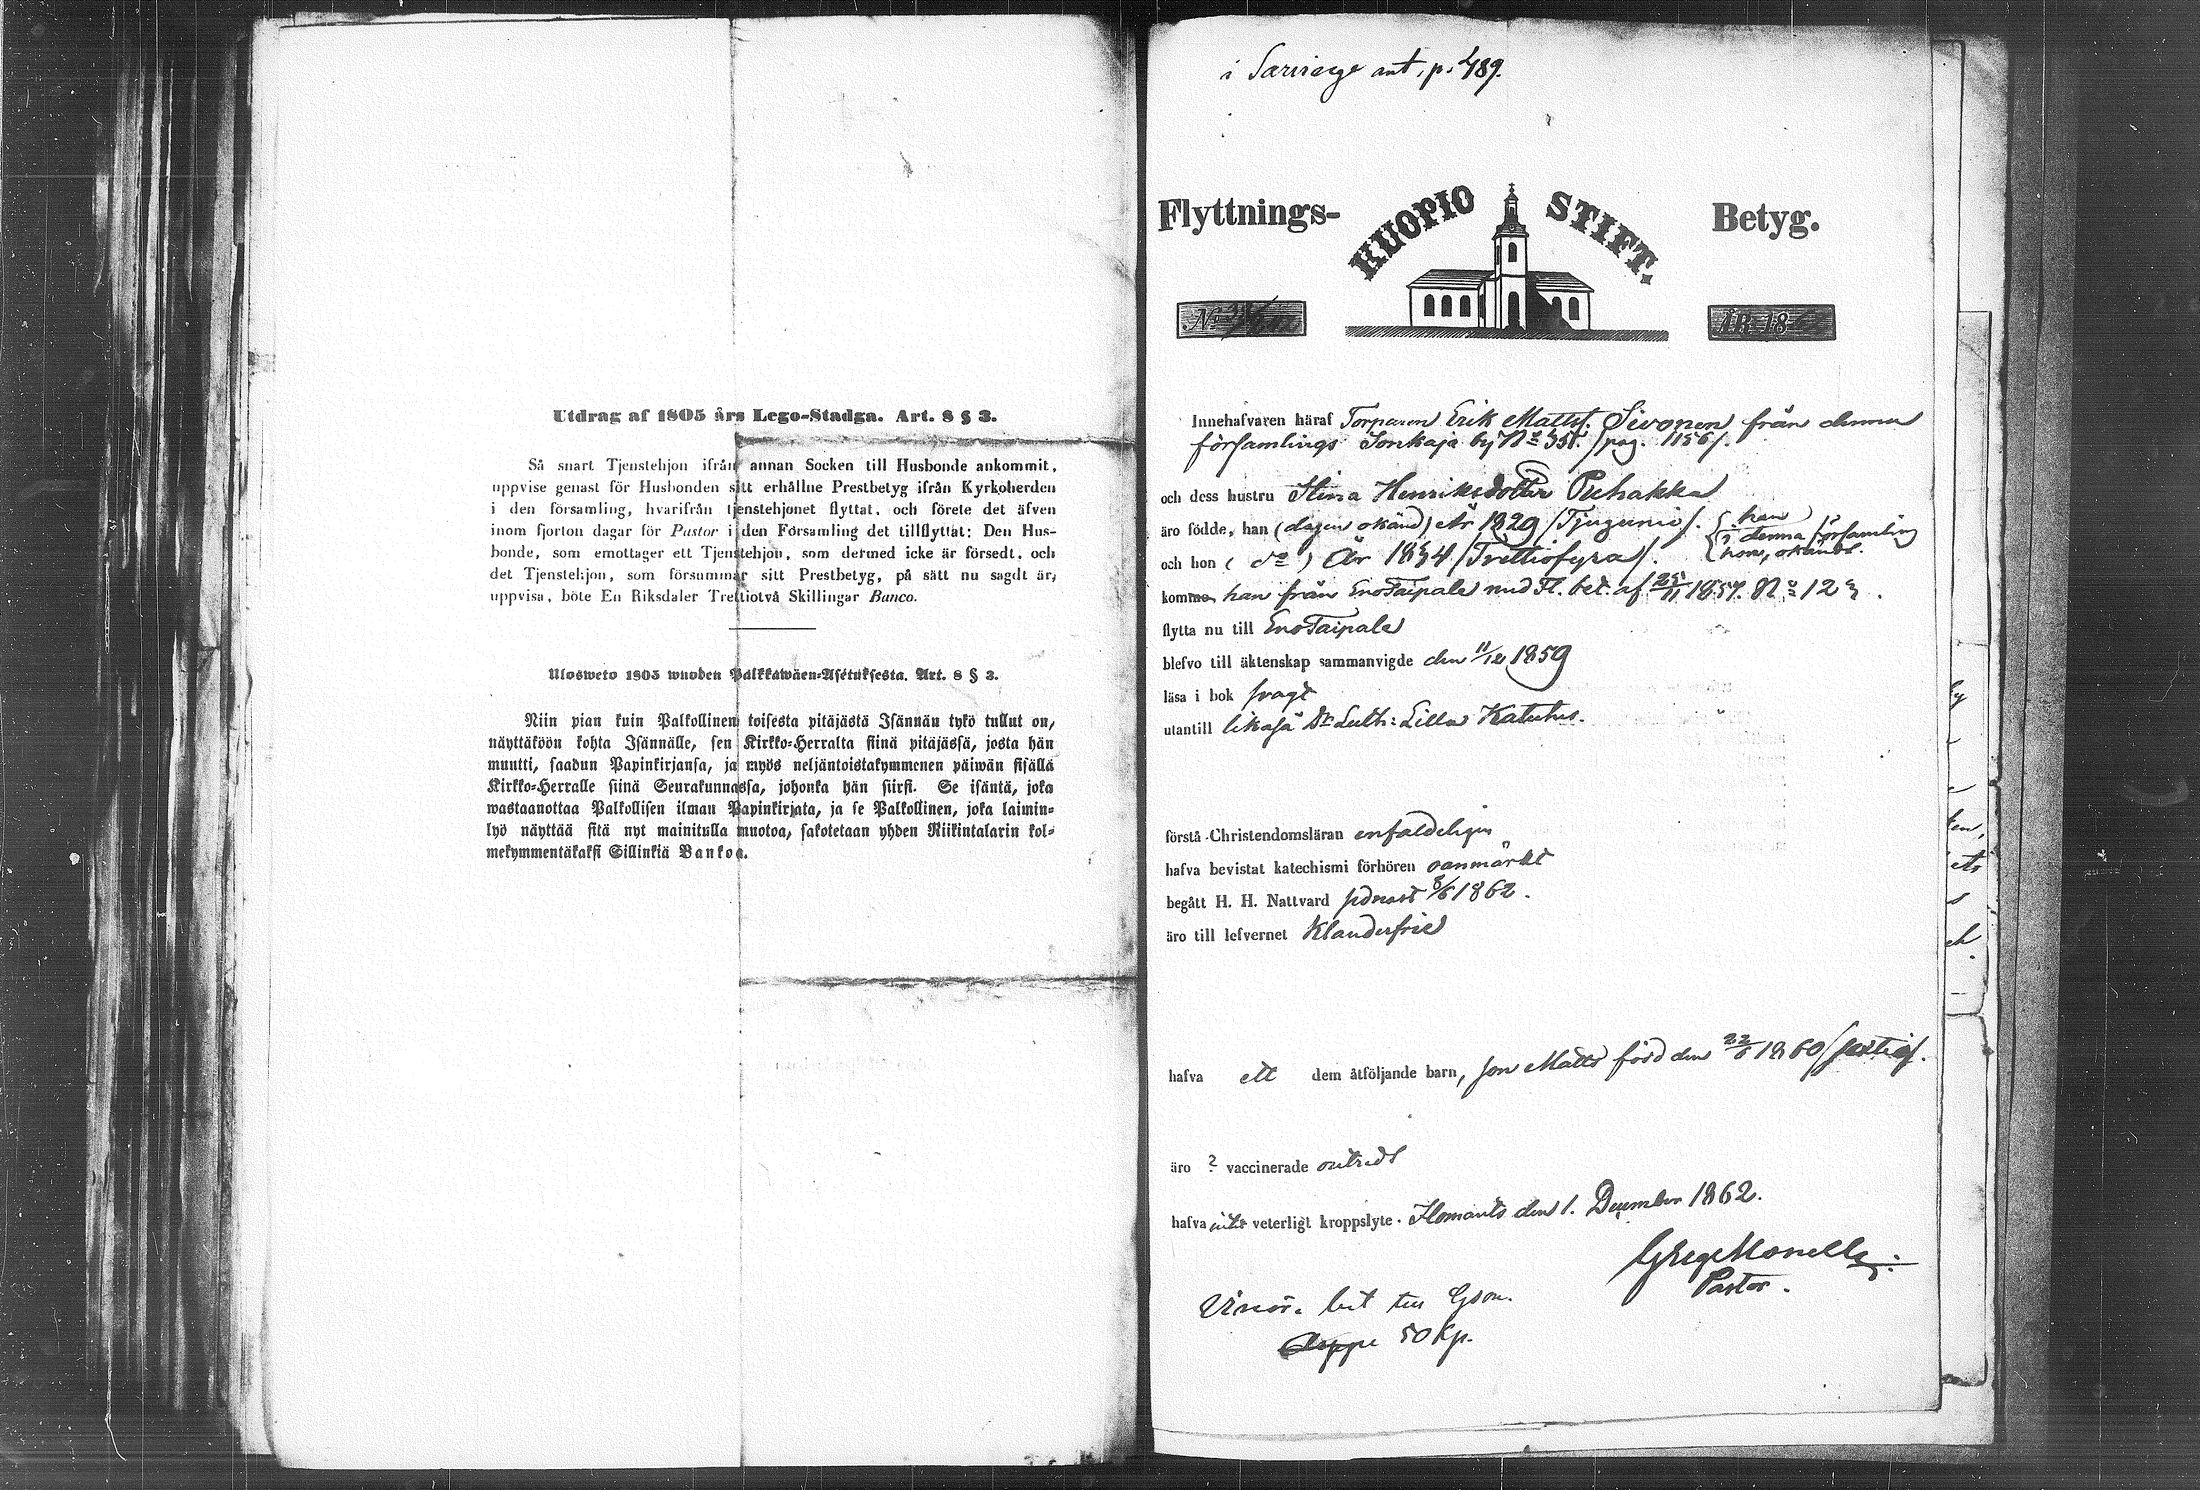 Utdrag af 1805 års Lego-Stadga. Art. 8 § 3.
Så snart Tjenstehjon ifrån annan Socken till Husbonde ankommit,
uppvise genast för Husbonden sitt erhållne Prestbetyg ifrån Kyrkoherden
i den församling, hvarifrån tjenstehjonet flyttat, och förete det äfven
inom fjorton dagar för Pastor i den Församling det tillflyttat: Den Hus-
bonde, som emottager ett Tjenstehjon, som dermed icke är försedt, och
det Tjenstehjon, som försummar sitt Prestbetyg, på sätt nu sagdt är,
uppvisa, böte En Riksdaler Trettiotvå Skillingar Banco.
Ulosweto 1805 wuoden Palkkawäen-Asetuksesta. Art. 8 § 3.
Niin pian kuin Palkollinen toisesta pitäjästä Isännän tykö tullut on,
näyttäköön kohta Isännälle, sen Kirkko-Herralta siinä pitäjässä, josta hän
muutti, saadun Papinkirjansa, ja myös neljäntoistakymmenen päiwän sisällä
Kirkko-Herralle siinä Seurakunnassa, johonka hän siirsi. Se isäntä, joka
wastaanottaa Palkollisen ilman Papinkirjata, ja se Palkollinen, joka laimin-
lyö näyttää sitä nyt mainitulla muotoa, sakotetaan yhden Riikintalarin kol-
mekymmentäkaksi Sillinkiä Bankoa.
i Sarvinge ant. p. 489.
Flyttnings- KUOPIO STIFT. Betyg.
No ÅR 18
Innehafvaren häraf Torparen Erik Mattss. Sivonen från denna
församlings Sonkaja by No 35 /pag. 1156/.
och dess hustru Stina Henriksdotter Puhakka
äro födde, han (dagen okänd) År 1829 /Tjugunio/. { han i denna församling
och hon ( do ) År 1834 /Trettiofyra/. { hon, okändt.
komme han från EnoTaipale med Fl. bet. af 25/11 1857. No 123.
flytta nu till EnoTaipale
blefvo till äktenskap sammanvigde den 11/12 1859
läsa i bok svagt
utantill likaså Dr Luth: Lilla Kateches.
förstå Christendomsläran enfaldeligen
hafva bevistat katechismi förhören oanmärkt
begått H. H. Nattvard sednast 8/6 1862.
äro till lefvernet Klanderfrie
hafva ett dem åtföljande barn, son Matts född den 22/6 1860 /sextio/.
äro ? vaccinerade
hafva icke veterligt kroppslyte. Ilomants den 1. December 1862.
Pastor.
50 Kp.